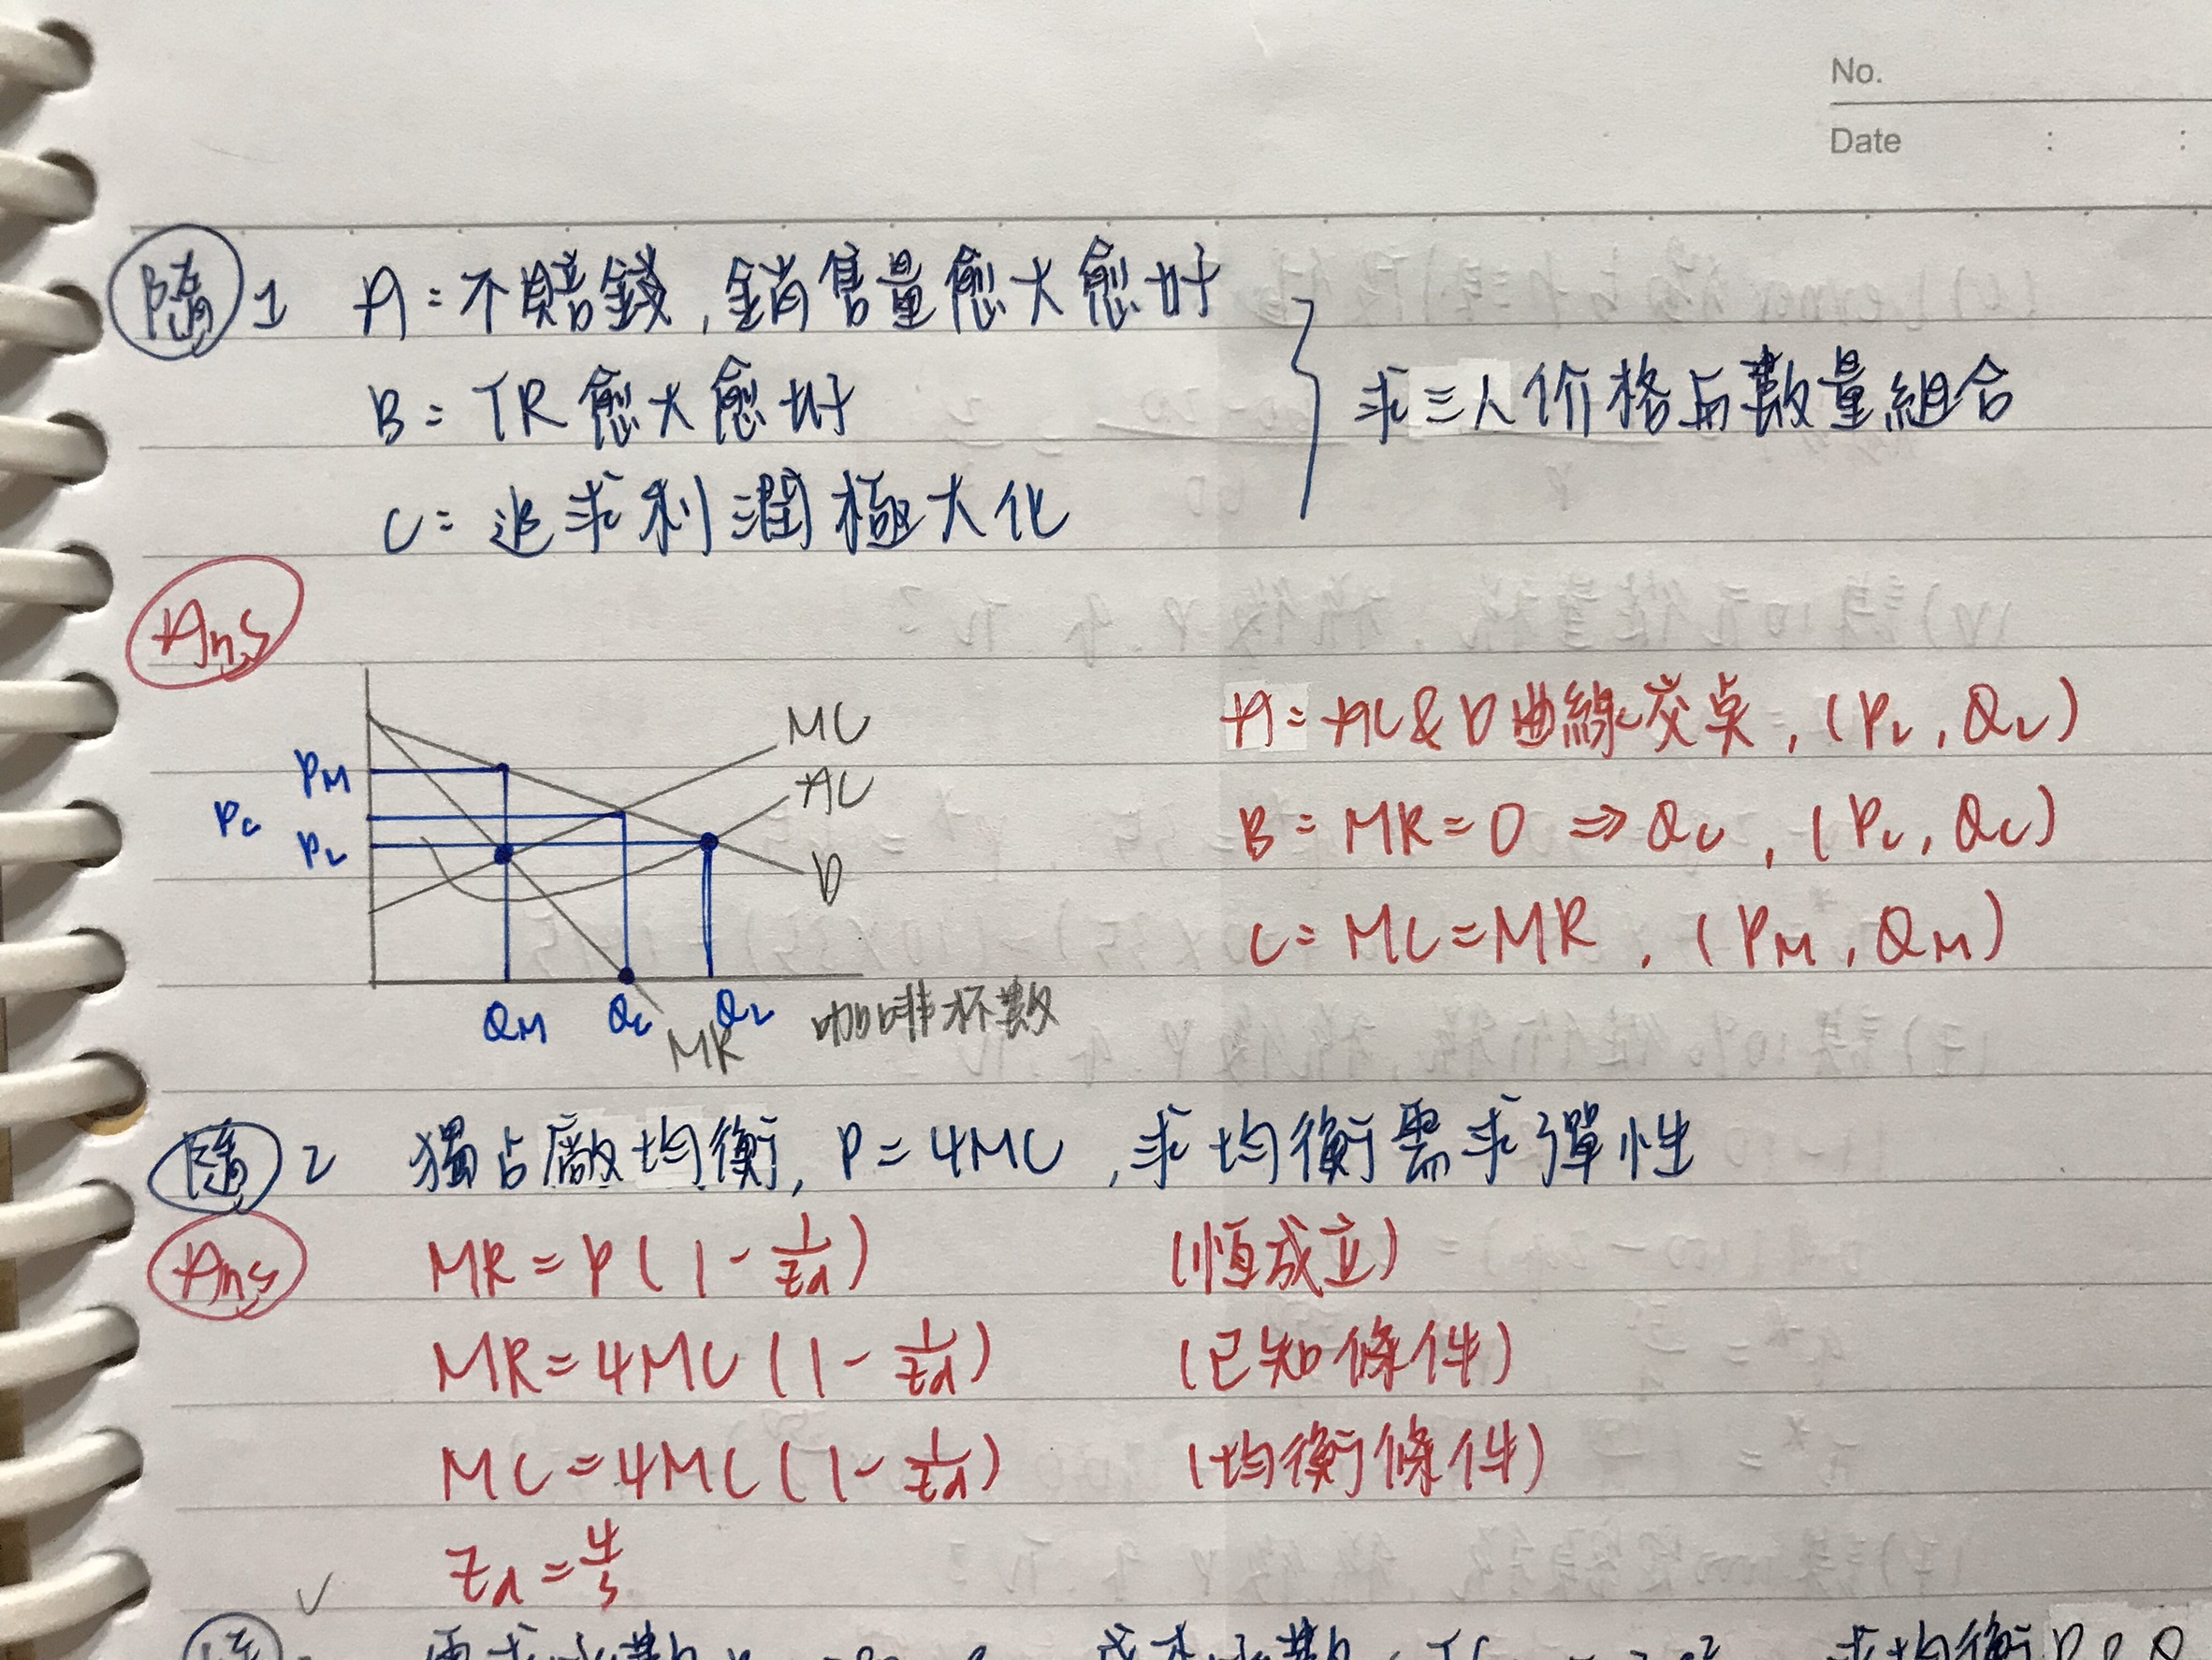 No.
Date : :
隨 1 A=不賠錢,銷售量愈大愈好
B=TR愈大愈好
C=追求利潤極大化
求三人价格与數量組合
Ans
MC
AC
D
PM
Pc
PL
QM Qc QL 咖啡杯數
MR
A=AC&D曲線交点,(PL,QL)
B=MR=0⇒Qc,(Pc,Qc)
C=MC=MR,(PM,QM)
隨 2 獨占廠均衡,P=4MC,求均衡需求彈性
Ans MR=P(1-1/εd) (恒成立)
MR=4MC(1-1/εd) (已知條件)
MC=4MC(1-1/εd) (均衡條件)
εd=4/3